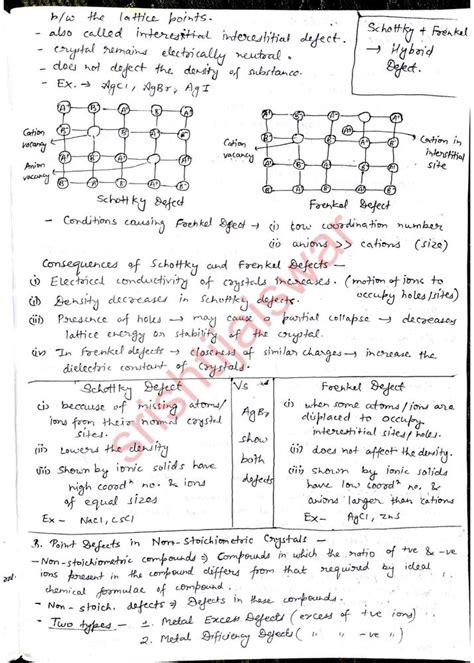 b/w the lattice points.
- also called interestitial interestitial defect.
- crystal remains electrically neutral.
- does not defect the density of substance.
- Ex. → AgCl, AgBr, AgI
Schottky + Frenkel
→ Hybrid
Defect.
Cation
vacancy
Anion
vacancy
Schottky Defect
Cation
vacancy
Cation in
interstitial
site
Frenkel Defect
- Conditions causing Frenkel Defect → (i) low coordination number
(ii) anions >> cations (size)
Consequences of Schottky and Frenkel Defects -
(i) Electrical conductivity of crystals increases. (motion of ions to
occupy holes/sites)
(ii) Density decreases in Schottky defects.
(iii) Presence of holes → may cause partial collapse → decreases
lattice energy or stability of the crystal.
(iv) In Frenkel defects → closeness of similar charges → increase the
dielectric constant of Crystals.
Schottky Defect Vs Frenkel Defect
(i) because of missing atoms/
ions from their normal crystal
sites.
(ii) Lowers the density
(iii) Shown by ionic solids have
high coordⁿ no. & ions
of equal sizes
Ex - NaCl, CsCl
AgBr
show
both
defects
(i) when some atoms/ions are
displaced to occupy
interestitial sites/holes.
(ii) does not affect the density.
(iii) shown by ionic solids
have low coordⁿ no. &
anions larger than cations
Ex - AgCl, ZnS
3. Point Defects in Non-Stoichiometric Crystals -
- Non-stoichiometric compounds ⇒ Compounds in which the ratio of +ve & -ve
ions present in the compound differs from that required by ideal
chemical formulae of compound.
- Non-stoich. defects ⇒ Defects in these compounds.
- Two types - 1. Metal Excess Defects (excess of +ve ions)
2. Metal Dificiency Defects ( " " -ve " )
srishtijaiswar